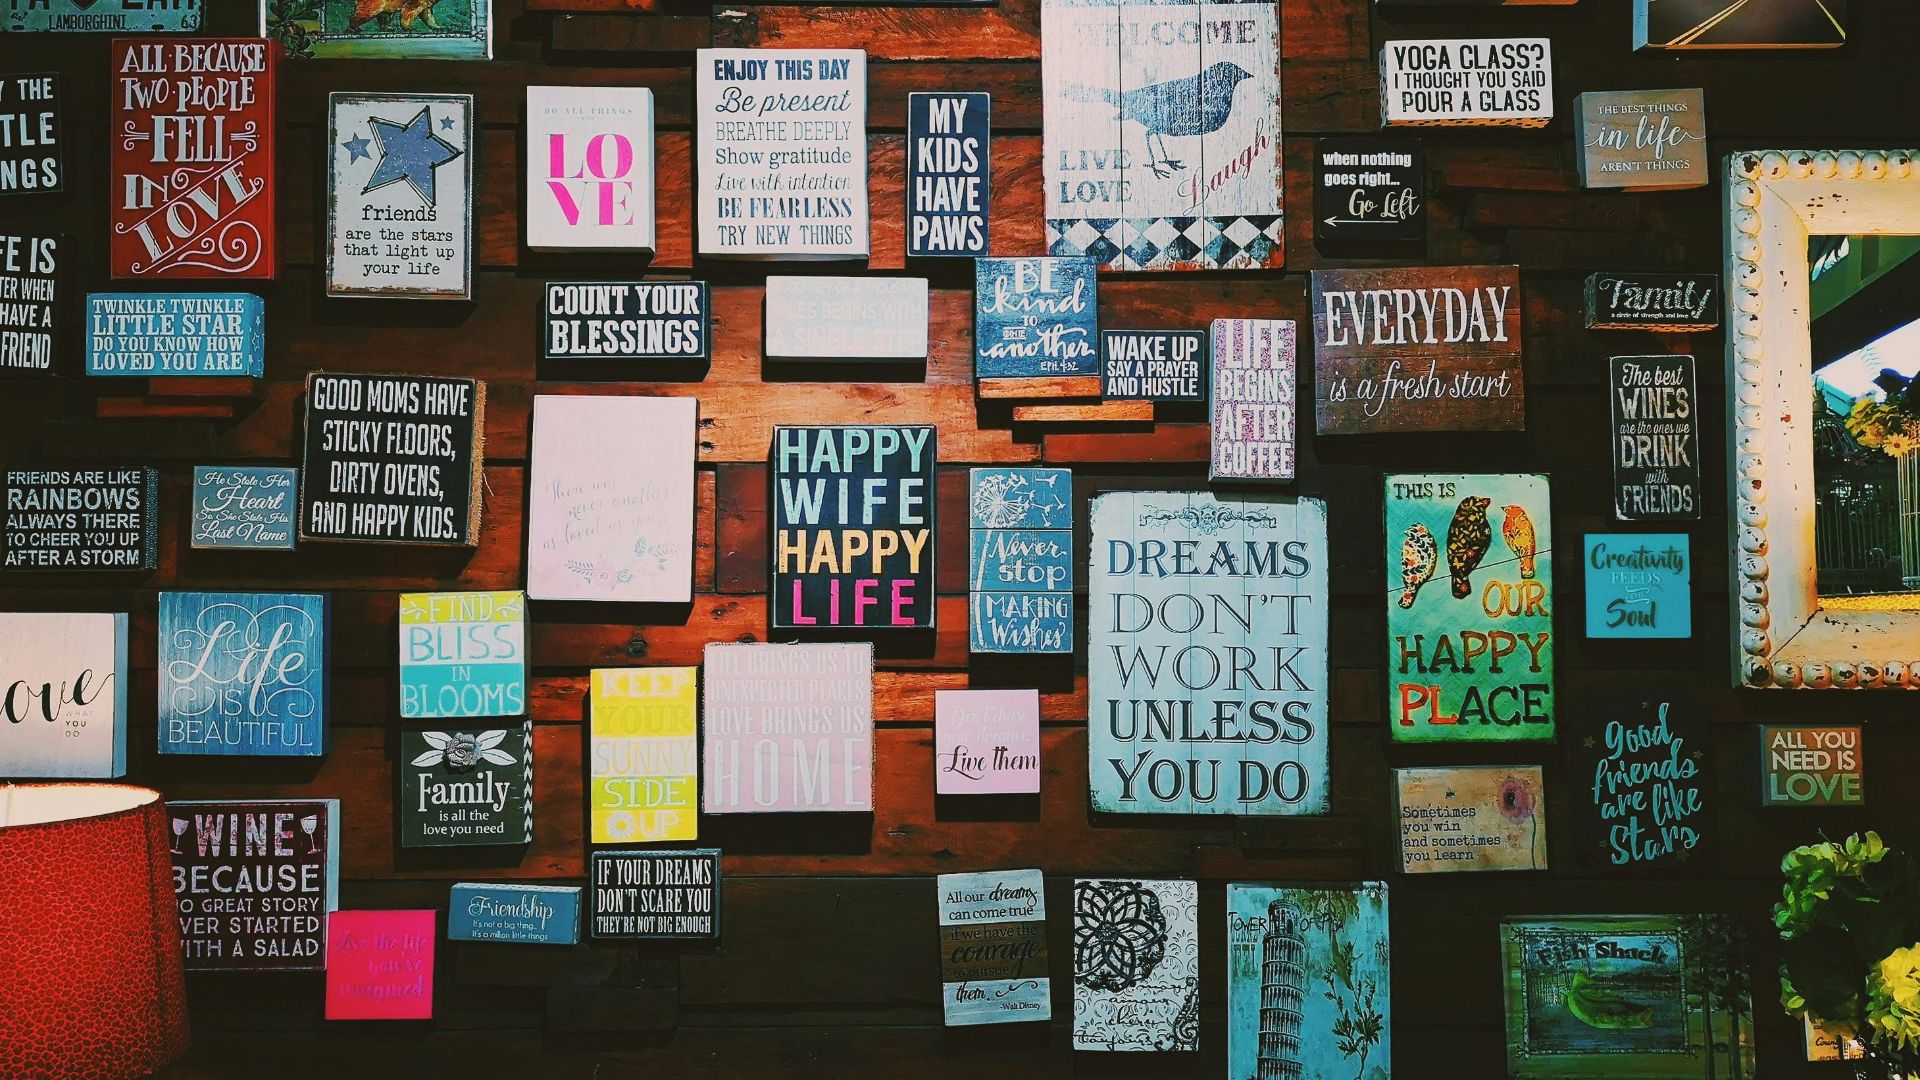 LAMBORGHINI 63
THE
TLE
NGS
ALL BECAUSE
TWO PEOPLE
FELL
IN
LOVE
friends
are the stars
that light up
your life
DO ALL THINGS
LO
VE
ENJOY THIS DAY
Be present
BREATHE DEEPLY
Show gratitude
Live with intention
BE FEARLESS
TRY NEW THINGS
MY
KIDS
HAVE
PAWS
WELCOME
LIVE
LOVE
Laugh
YOGA CLASS?
I THOUGHT YOU SAID
POUR A GLASS
THE BEST THINGS
in life
AREN'T THINGS
when nothing
goes right...
Go Left
FE IS
TER WHEN
HAVE A
FRIEND
TWINKLE TWINKLE
LITTLE STAR
DO YOU KNOW HOW
LOVED YOU ARE
COUNT YOUR
BLESSINGS
JOURNEY OF A THOUSAND
MILES BEGINS WITH
BE
kind
TO
one
another
EPH. 4:32
WAKE UP
SAY A PRAYER
AND HUSTLE
LIFE
BEGINS
AFTER
COFFEE
EVERYDAY
is a fresh start
Family
a circle of strength and love
The best
WINES
are the ones we
DRINK
with
FRIENDS
GOOD MOMS HAVE
STICKY FLOORS,
DIRTY OVENS,
AND HAPPY KIDS.
FRIENDS ARE LIKE
RAINBOWS
ALWAYS THERE
TO CHEER YOU UP
AFTER A STORM
He Stole Her
Heart
So She Stole His
Last Name
There was
never another
as loved as you
HAPPY
WIFE
HAPPY
LIFE
Never
stop
MAKING
Wishes
DREAMS
DON'T
WORK
UNLESS
YOU DO
THIS IS
OUR
HAPPY
PLACE
Creativity
FEEDS
THE
Soul
love
WHAT
YOU
DO
Life
IS
BEAUTIFUL
FIND
BLISS
IN
BLOOMS
KEEP
YOUR
SUNNY
SIDE
UP
LIFE BRINGS US TO
UNEXPECTED PLACES
LOVE BRINGS US
HOME
Don't chase
your dreams...
Live them
Family
is all the
love you need
good
friends
are like
Stars
ALL YOU
NEED IS
LOVE
Sometimes
you win
and sometimes
you learn
WINE
BECAUSE
NO GREAT STORY
EVER STARTED
WITH A SALAD
live the life
you've
imagined
Friendship
It's not a big thing...
It's a million little things
IF YOUR DREAMS
DON'T SCARE YOU
THEY'RE NOT BIG ENOUGH
All our dreams
can come true
if we have the
courage
to pursue
them.
-Walt Disney
TOWER OF PISA
Fish Shack